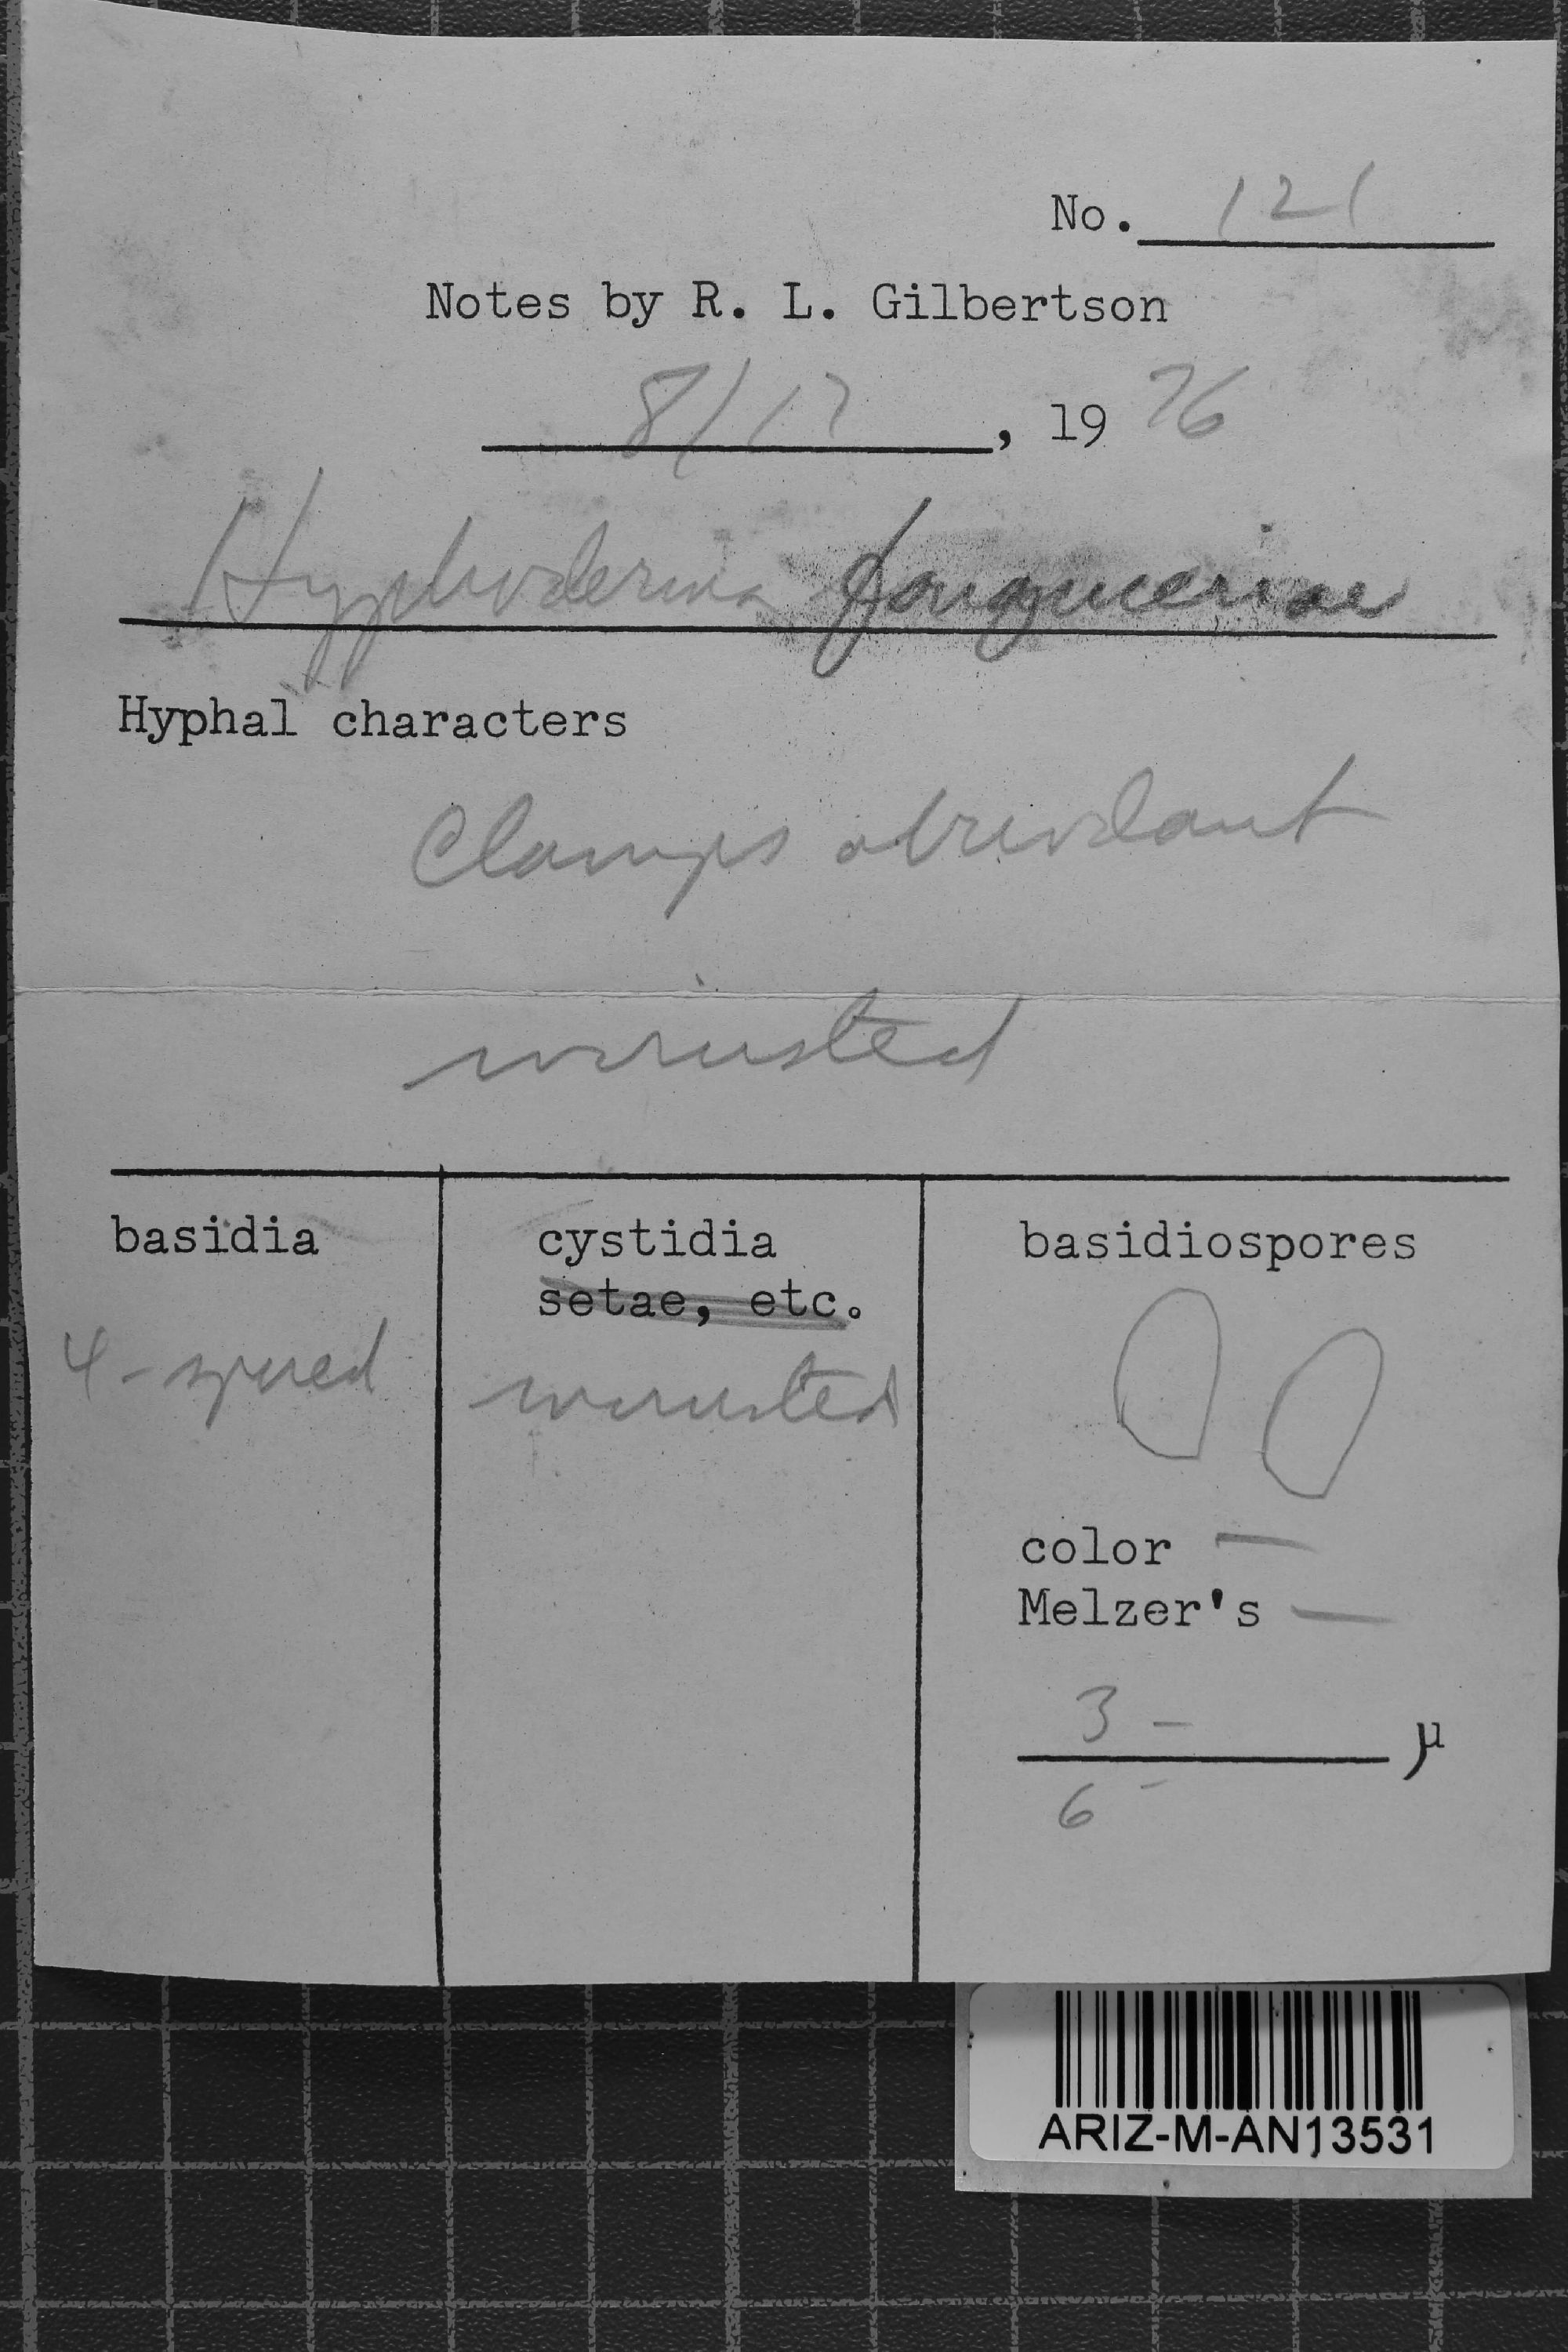 No. 121
Notes by R. L. Gilbertson
8/17, 1976
Hyphoderma fouquieriae
Hyphal characters
Clamps abundant
incrusted
basidia
4-spored
cystidia
setae, etc.
incrusted
basidiospores
color —
Melzer's —
3 -
µ
6 -
ARIZ-M-AN13531